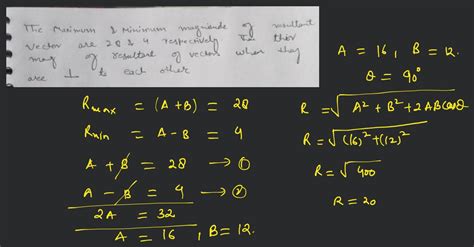 The Maximum & Minimum magnitude of resultant
vector are 28 & 4 respectively
mag of resultant of vectors when they
are ⊥ to each other
Rmax = (A+B) = 28
Rmin = A - B = 4
A + B = 28 → ①
A - B = 4 → ②
2A = 32
A = 16 , B = 12.
A = 16, B = 12.
θ = 90°
R = √A² + B² + 2ABcosθ
R = √(16)² + (12)²
R = √400
R = 20